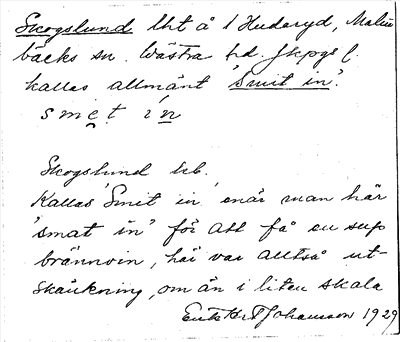 Skogslund lht å 1 Hudaryd, Malm
bäcks sn. Västra hd. Jkpgs l.
kallas allmänt 'Smit in'.
smet ín
Skogslund hb.
Kallas 'Smit in' enär man här
'smat in' för att få en sup
brännvin, här var alltså ut-
skänkning, om än i liten skala
Johansson 1929